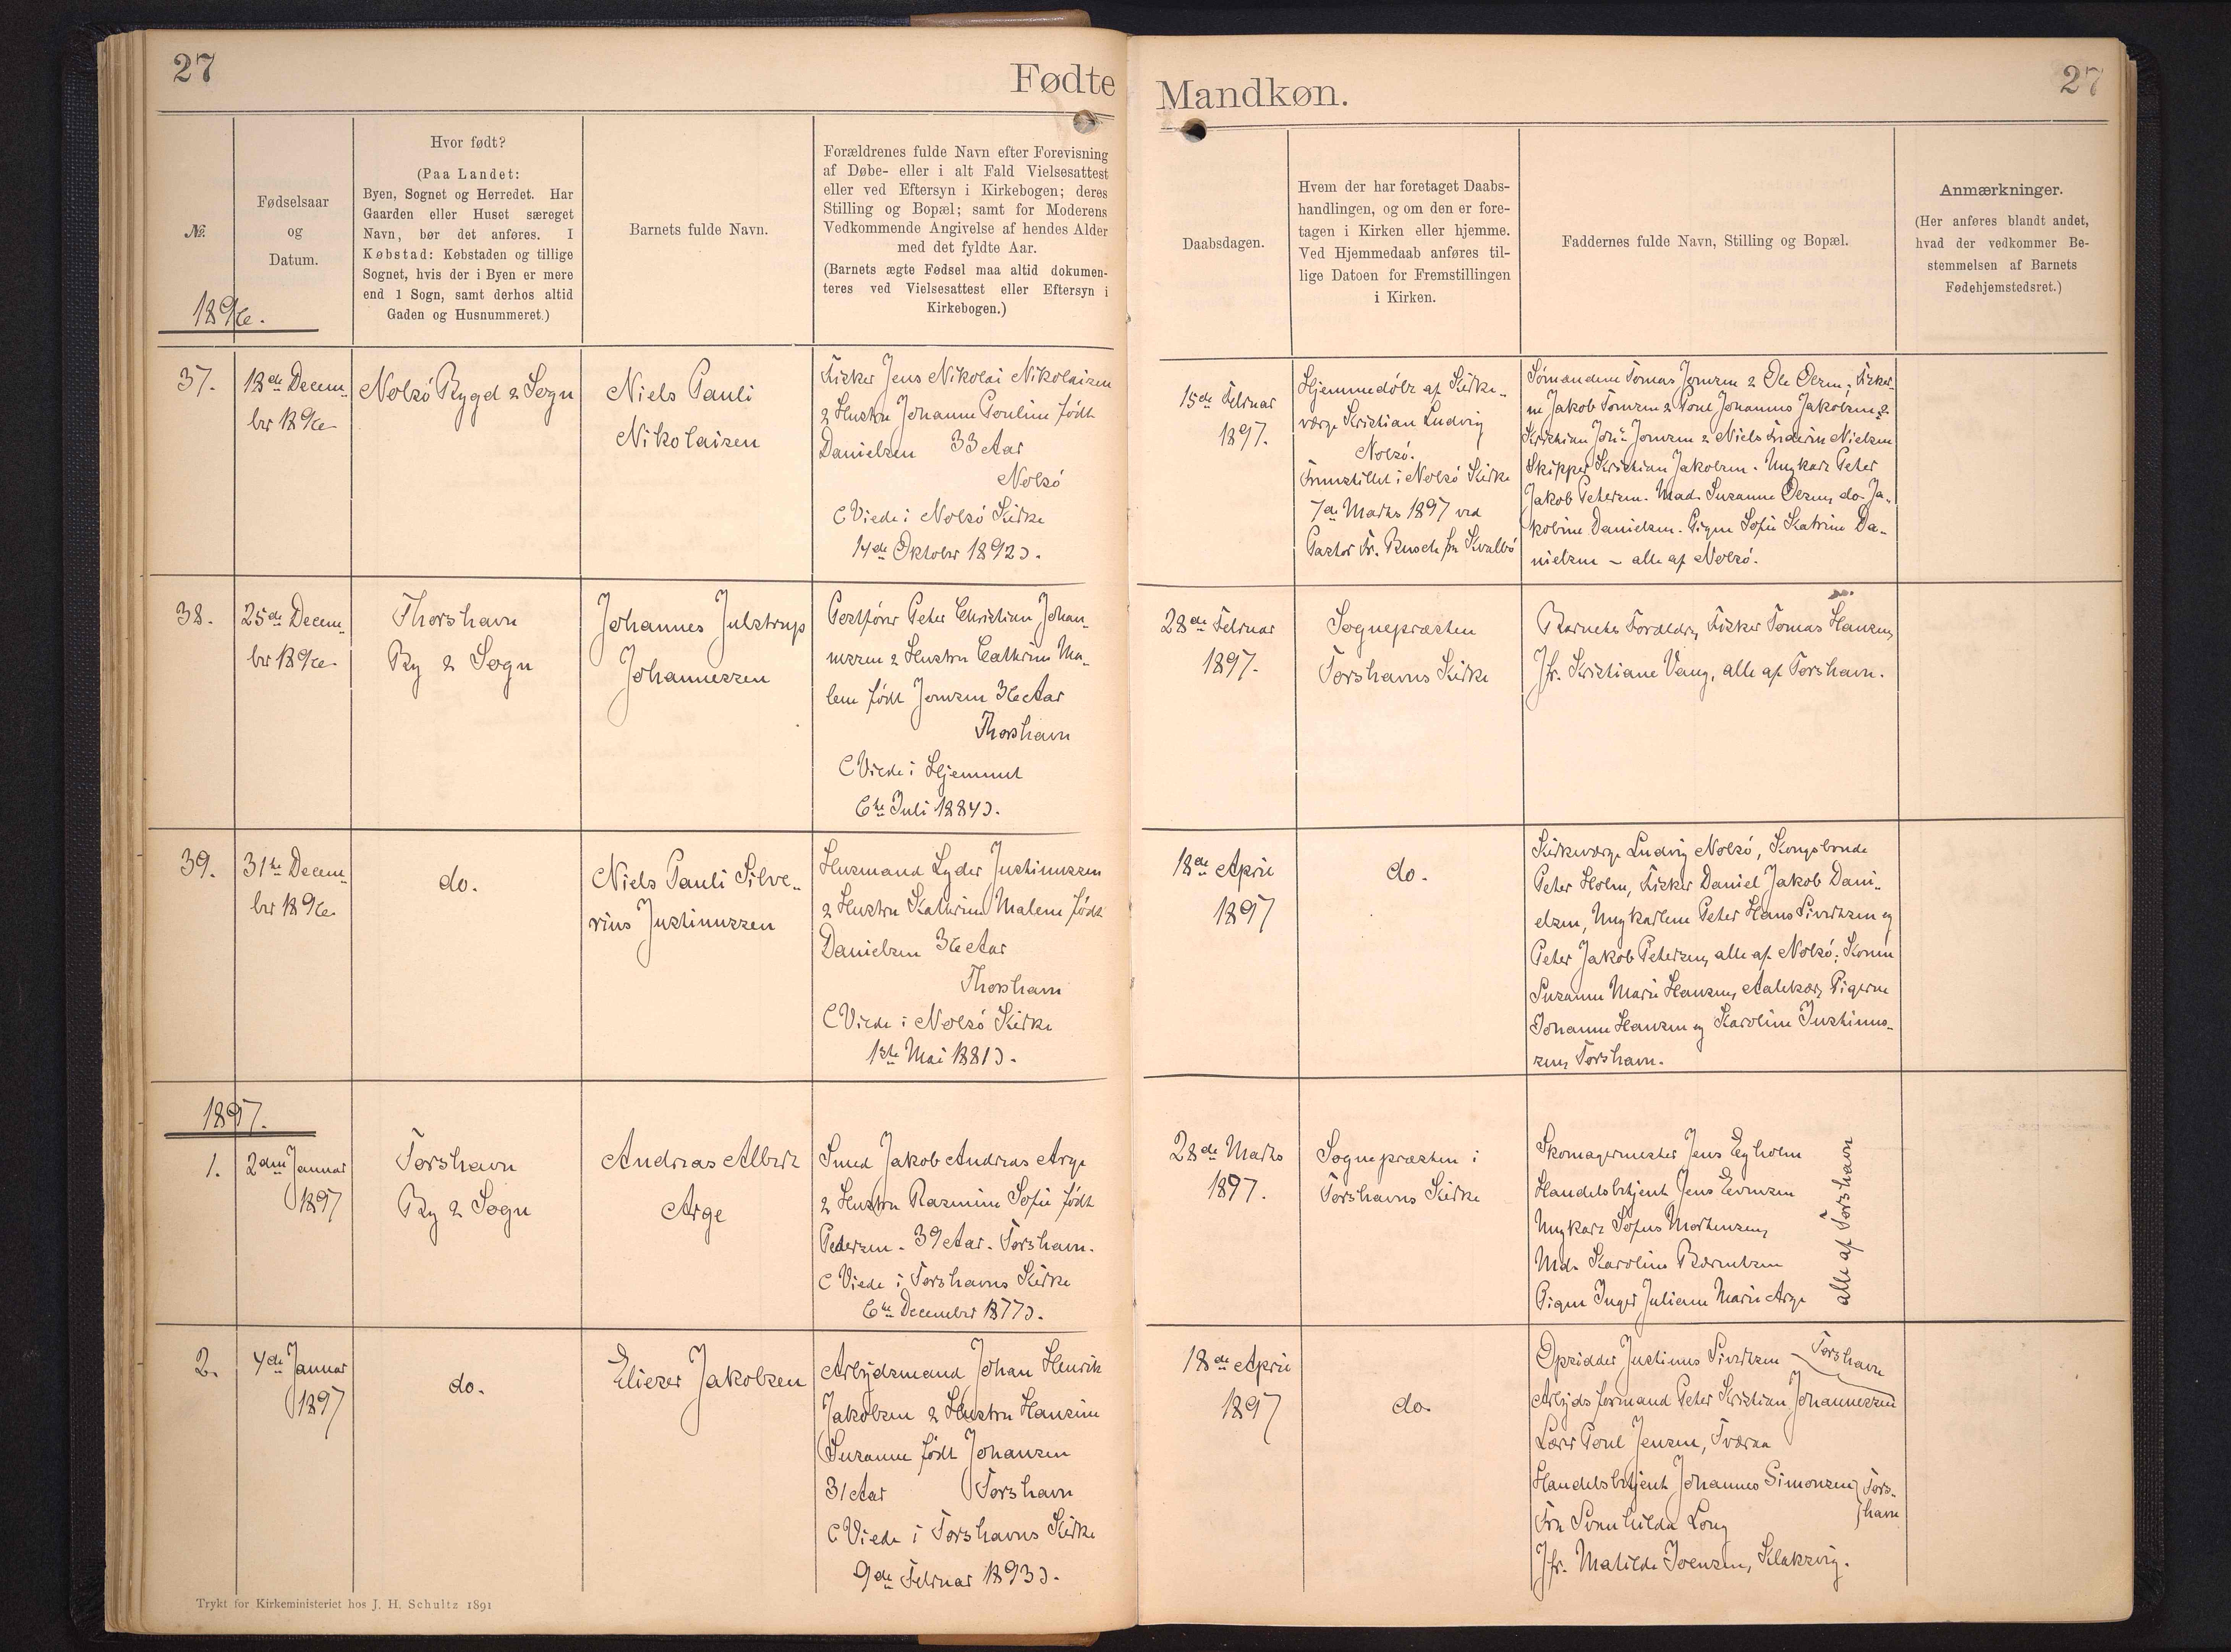 27
Fødte
Mandkøn.
27
№
Fødselsaar
og
Datum.
Hvor født?
(Paa Landet:
Byen, Sognet og Herredet. Har
Gaarden eller Huset særeget
Navn, bør det anføres. I
Købstad: Købstaden og tillige
Sognet, hvis der i Byen er mere
end 1 Sogn, samt derhos altid
Gaden og Husnummeret.)
Barnets fulde Navn.
Forældrenes fulde Navn efter Forevisning
af Døbe- eller i alt Fald Vielsesattest
eller ved Eftersyn i Kirkebogen; deres
Stilling og Bopæl; samt for Moderens
Vedkommende Angivelse af hendes Alder
med det fyldte Aar.
(Barnets ægte Fødsel maa altid dokumen-
teres ved Vielsesattest eller Eftersyn i
Kirkebogen.)
Daabsdagen.
Hvem der har foretaget Daabs-
handlingen, og om den er fore-
tagen i Kirken eller hjemme.
Ved Hjemmedaab anføres til-
lige Datoen for Fremstillingen
i Kirken.
Faddernes fulde Navn, Stilling og Bopæl.
Anmærkninger.
(Her anføres blandt andet,
hvad der vedkommer Be-
stemmelsen af Barnets
Fødehjemstedsret.)
1896.
37.
18de Decem-
ber 1896
Nolsó Bygd & Sogn
Niels Pauli
Nikolaisen
Fisker Jens Nikolai Nikolaisen
& Hustru Johanne Pouline født
Danielsen 33 Aar
Nolsó
(Viede i Nolsó Kirke
14de Oktober 1892).
15de Februar
1897.
Hjemmedøbt af Kirke-
værge Kristian Ludvig
Nolsó.
Fremstillet i Nolsó Kirke
7de Marts 1897 ved
Pastor Fr. Busch fra Kvalbó
Sømændene Tomas Joensen & Ole Olsen, Fisker-
ne Jakob Tomsen & Poul Johannes Jakobsen &
Kristian Johs Joensen & Niels Frederik Nielsen
Skipper Kristian Jakobsen. Ungkarl Peter
Jakob Petersen. Mad. Susanne Olsen, do. Ja-
kobine Danielsen. Pigen Sofie Katrine Da-
nielsen - alle af Nolsó.
38.
25de Decem-
ber 1896
Thorshavn
By & Sogn
Johannes Julstrup
Johannessen
Postfører Peter Christian Johan-
nessen & Hustru Cathrine Ma-
lene født Joensen 36 Aar
Thorshavn
(Viede i Hjemmet
6te Juli 1884).
28de Februar
1897.
Sognepræsten
Torshavns Kirke
Barnets Forældre, Fisker Tomas Hansen,
Jfr. Kristiane Vang, alle af Torshavn.
39.
31te Decem-
ber 1896
do.
Niels Pauli Silve-
rius Justinussen
Husmand Lyder Justinussen
& Hustru Kathrine Malene født
Danielsen 36 Aar
Thorshavn
(Viede i Nolsó Kirke
1ste Mai 1881).
18de April
1897
do.
Kirkeværge Ludvig Nolsó, Kongsbonde
Peter Holm, Fisker Daniel Jakob Dani-
elsen, Ungkarlene Peter Hans Sivertsen og
Peter Jakob Petersen, alle af Nolsó; Konen
Susanne Marie Hansen, Aalekær, Pigerne
Johanne Hansen og Karoline Justinus-
sen, Torshavn.
1897.
1.
2den Januar
1897
Torshavn
By & Sogn
Andreas Albert
Arge
Smed Jakob Andreas Arge
& Hustru Rasmine Sofie født
Pedersen. 39 Aar. Torshavn.
(Viede i Torshavns Kirke
6te December 1877).
28de Marts
1897.
Sognepræsten i
Torshavns Kirke
Skomagermester Jens Egholm
Handelsbetjent Jens Evensen
Ungkarl Sofus Mortensen,
Md. Karoline Berentsen
Pigen Inger Juliane Marie Arge
alle af Torshavn
2.
4de Januar
1897
do.
Eliezer Jakobsen
Arbejdsmand Johan Henrik
Jakobsen & Hustru Hansine
Susanne født Johansen
31 Aar Torshavn
(Viede i Torshavns Kirke
9de Februar 1893).
18de April
1897
do.
Opsidder Justinus Sivertsen - Torshavn
Arbejdsformand Peter Kristian Johannessen
Lærer Poul Jensen, Tveraa
Handelsbetjent Johannes Simonsen, Tors-
havn
Fru Svanhilda Long
Jfr. Matilde Joensen, Klaksvig.
Trykt for Kirkeministeriet hos J. H. Schultz 1891